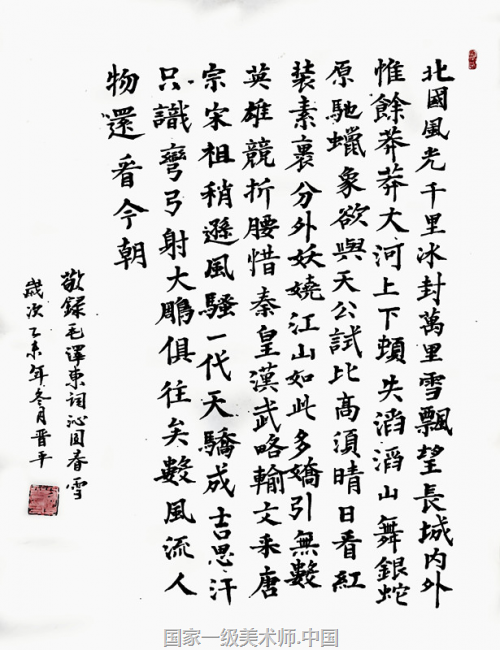 北國風光千里冰封萬里雪飄望長城內外
惟餘莽莽大河上下頓失滔滔山舞銀蛇
原馳蠟象欲與天公試比高須晴日看紅
裝素裹分外妖嬈江山如此多嬌引無數
英雄競折腰惜秦皇漢武略輸文采唐
宗宋祖稍遜風騷一代天驕成吉思汗
只識彎弓射大鵰俱往矣數風流人
物還看今朝
敬録毛澤東詞沁园春雪
歲次乙未年冬月晋平
国家一级美术师.中国